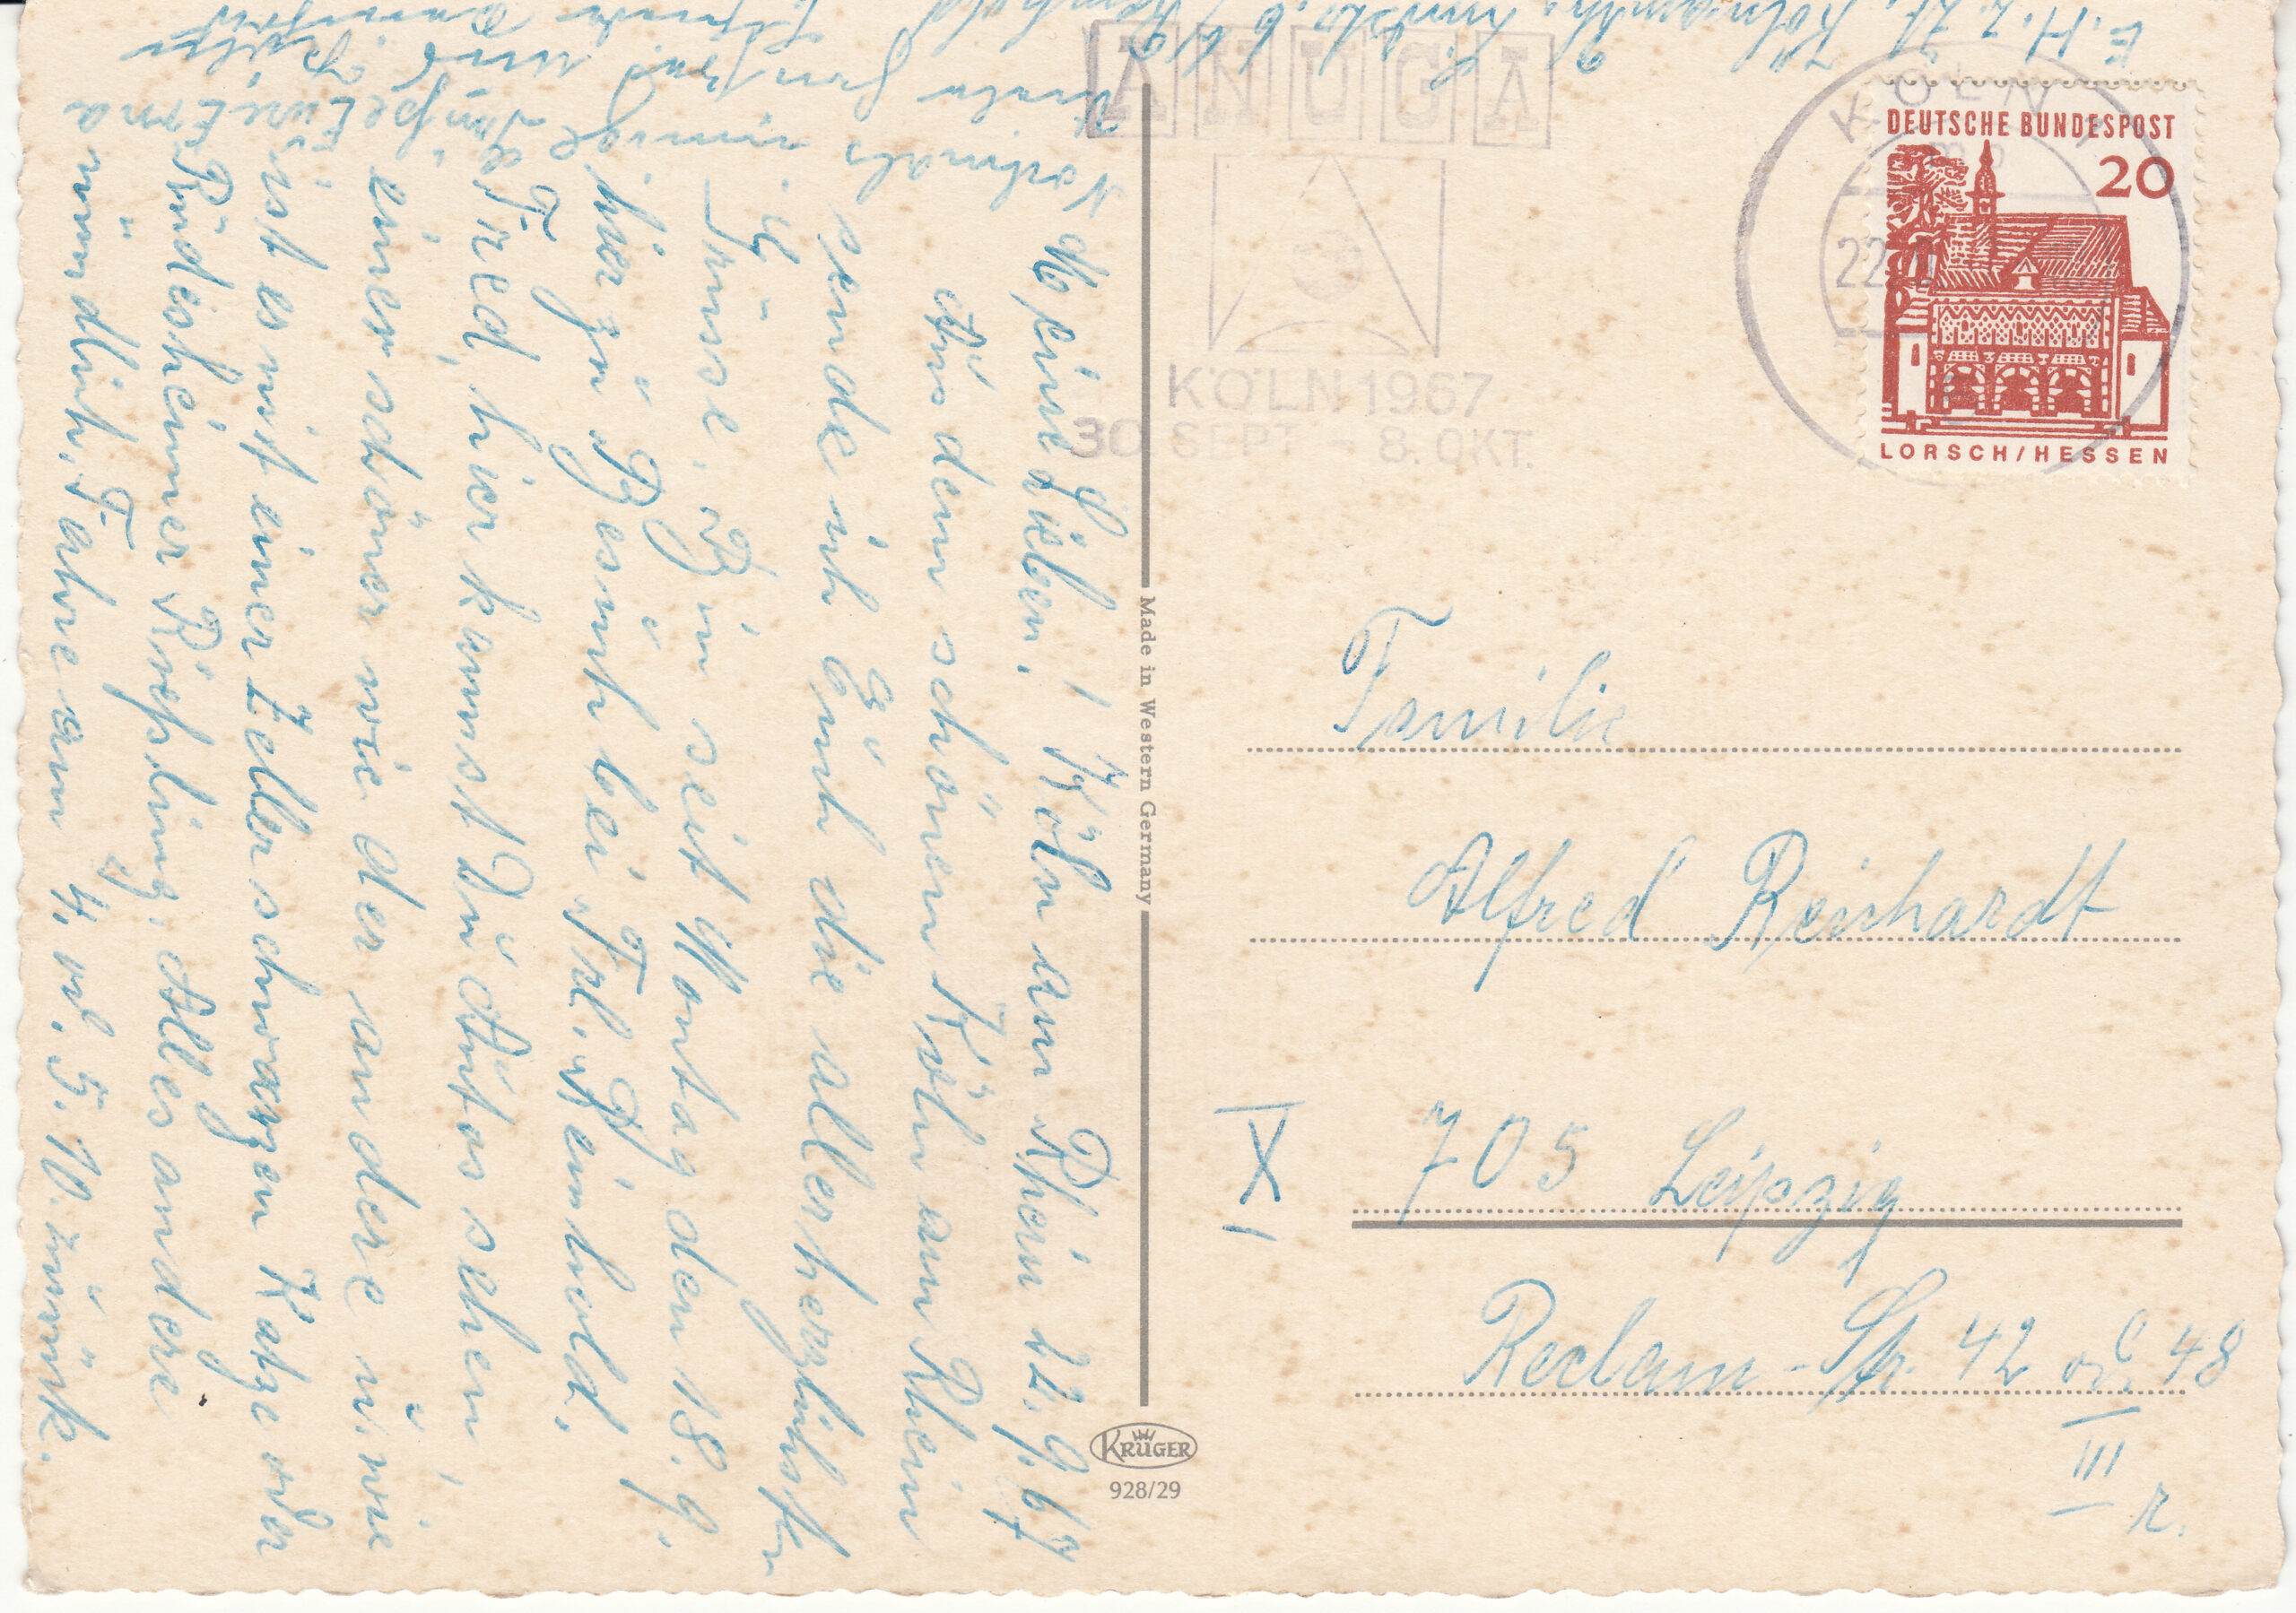 E. H. z. Zt. Köln
ANUGA
KÖLN 1967
30. SEPT. - 8. OKT.
KÖLN
22
DEUTSCHE BUNDESPOST
20
LORSCH/HESSEN
Meine Lieben! Köln am Rhein 22.9.67
Aus dem schönen Köln am Rhein
sende ich Euch die allerherzlichsten
Grüsse. Bin seit Montag den 18.9.
hier zu Besuch bei Frl. Hembold.
Fred, hier kannst Du Autos sehen,
einer schöner wie der andere u. wie
ist es mit einer Zeller schwarzen Katze oder
Rüdesheimer Riesling. Alles andere
mündlich. Fahre am 4. od. 5. 10. zurück.
Nochmals
Grüße
Eure Erna
Made in Western Germany
KRÜGER
928/29
Familie
Alfred Reinhardt
X
705 Leipzig
Reclam-Str. 42 od. 48
III r.